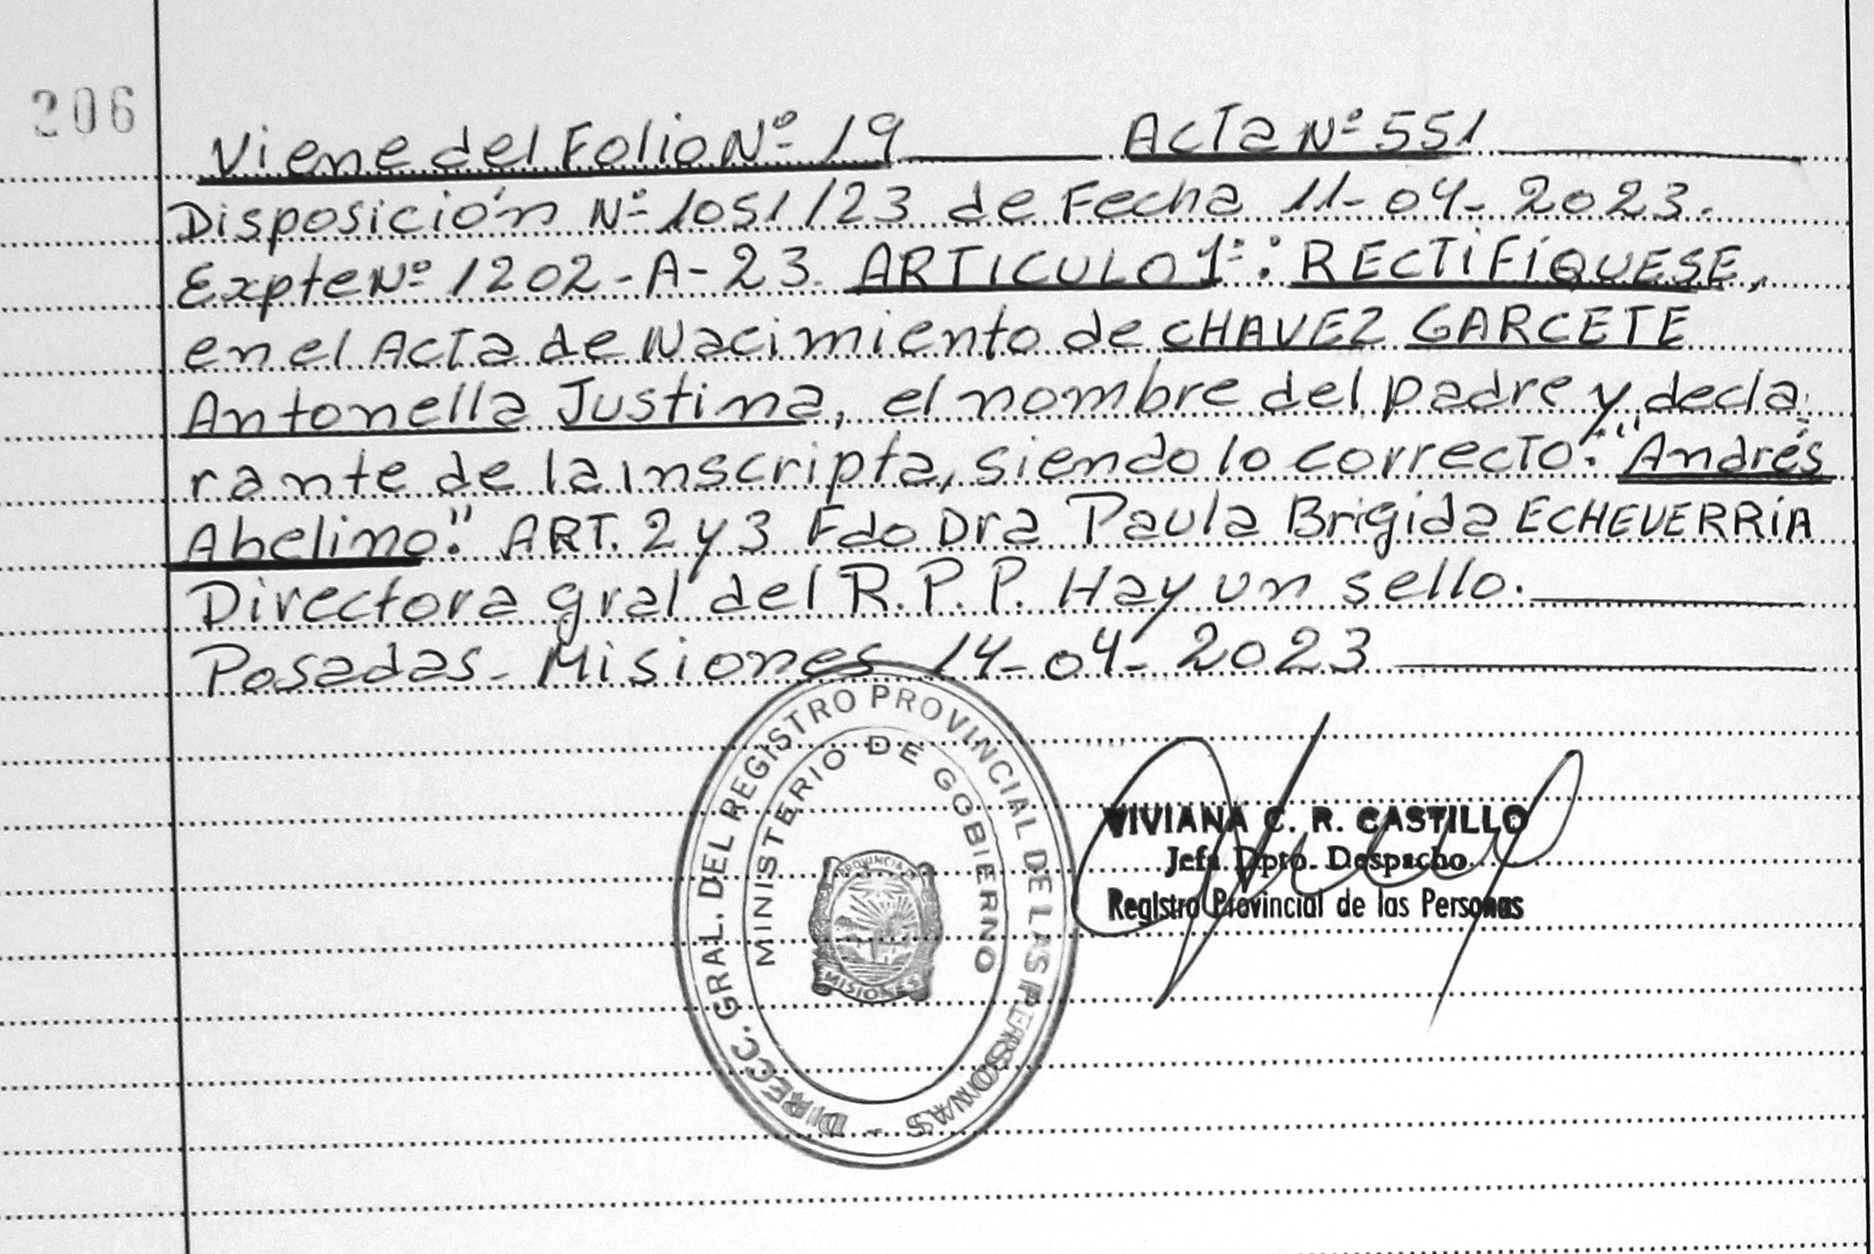 206
Viene del Folio Nº 19 Acta Nº 551
Disposición Nº 1051/23 de Fecha 11-04-2023.
Expte Nº 1202-A-23. ARTICULO 1º: RECTIFÍQUESE,
en el Acta de Nacimiento de CHAVEZ GARCETE
Antonella Justina, el nombre del padre y decla-
rante de la inscripta, siendo lo correcto: "Andrés
Abelino". ART. 2 y 3 Fdo Dra Paula Brigida ECHEVERRÍA
Directora gral del R.P.P. Hay un sello.
Posadas- Misiones 14-04-2023
DIRECC. GRAL. DEL REGISTRO PROVINCIAL DE LAS PERSONAS -
MINISTERIO DE GOBIERNO
PROVINCIA DE
MISIONES
VIVIANA C. R. CASTILLO
Jefa Dpto. Despacho
Registro Provincial de las Personas